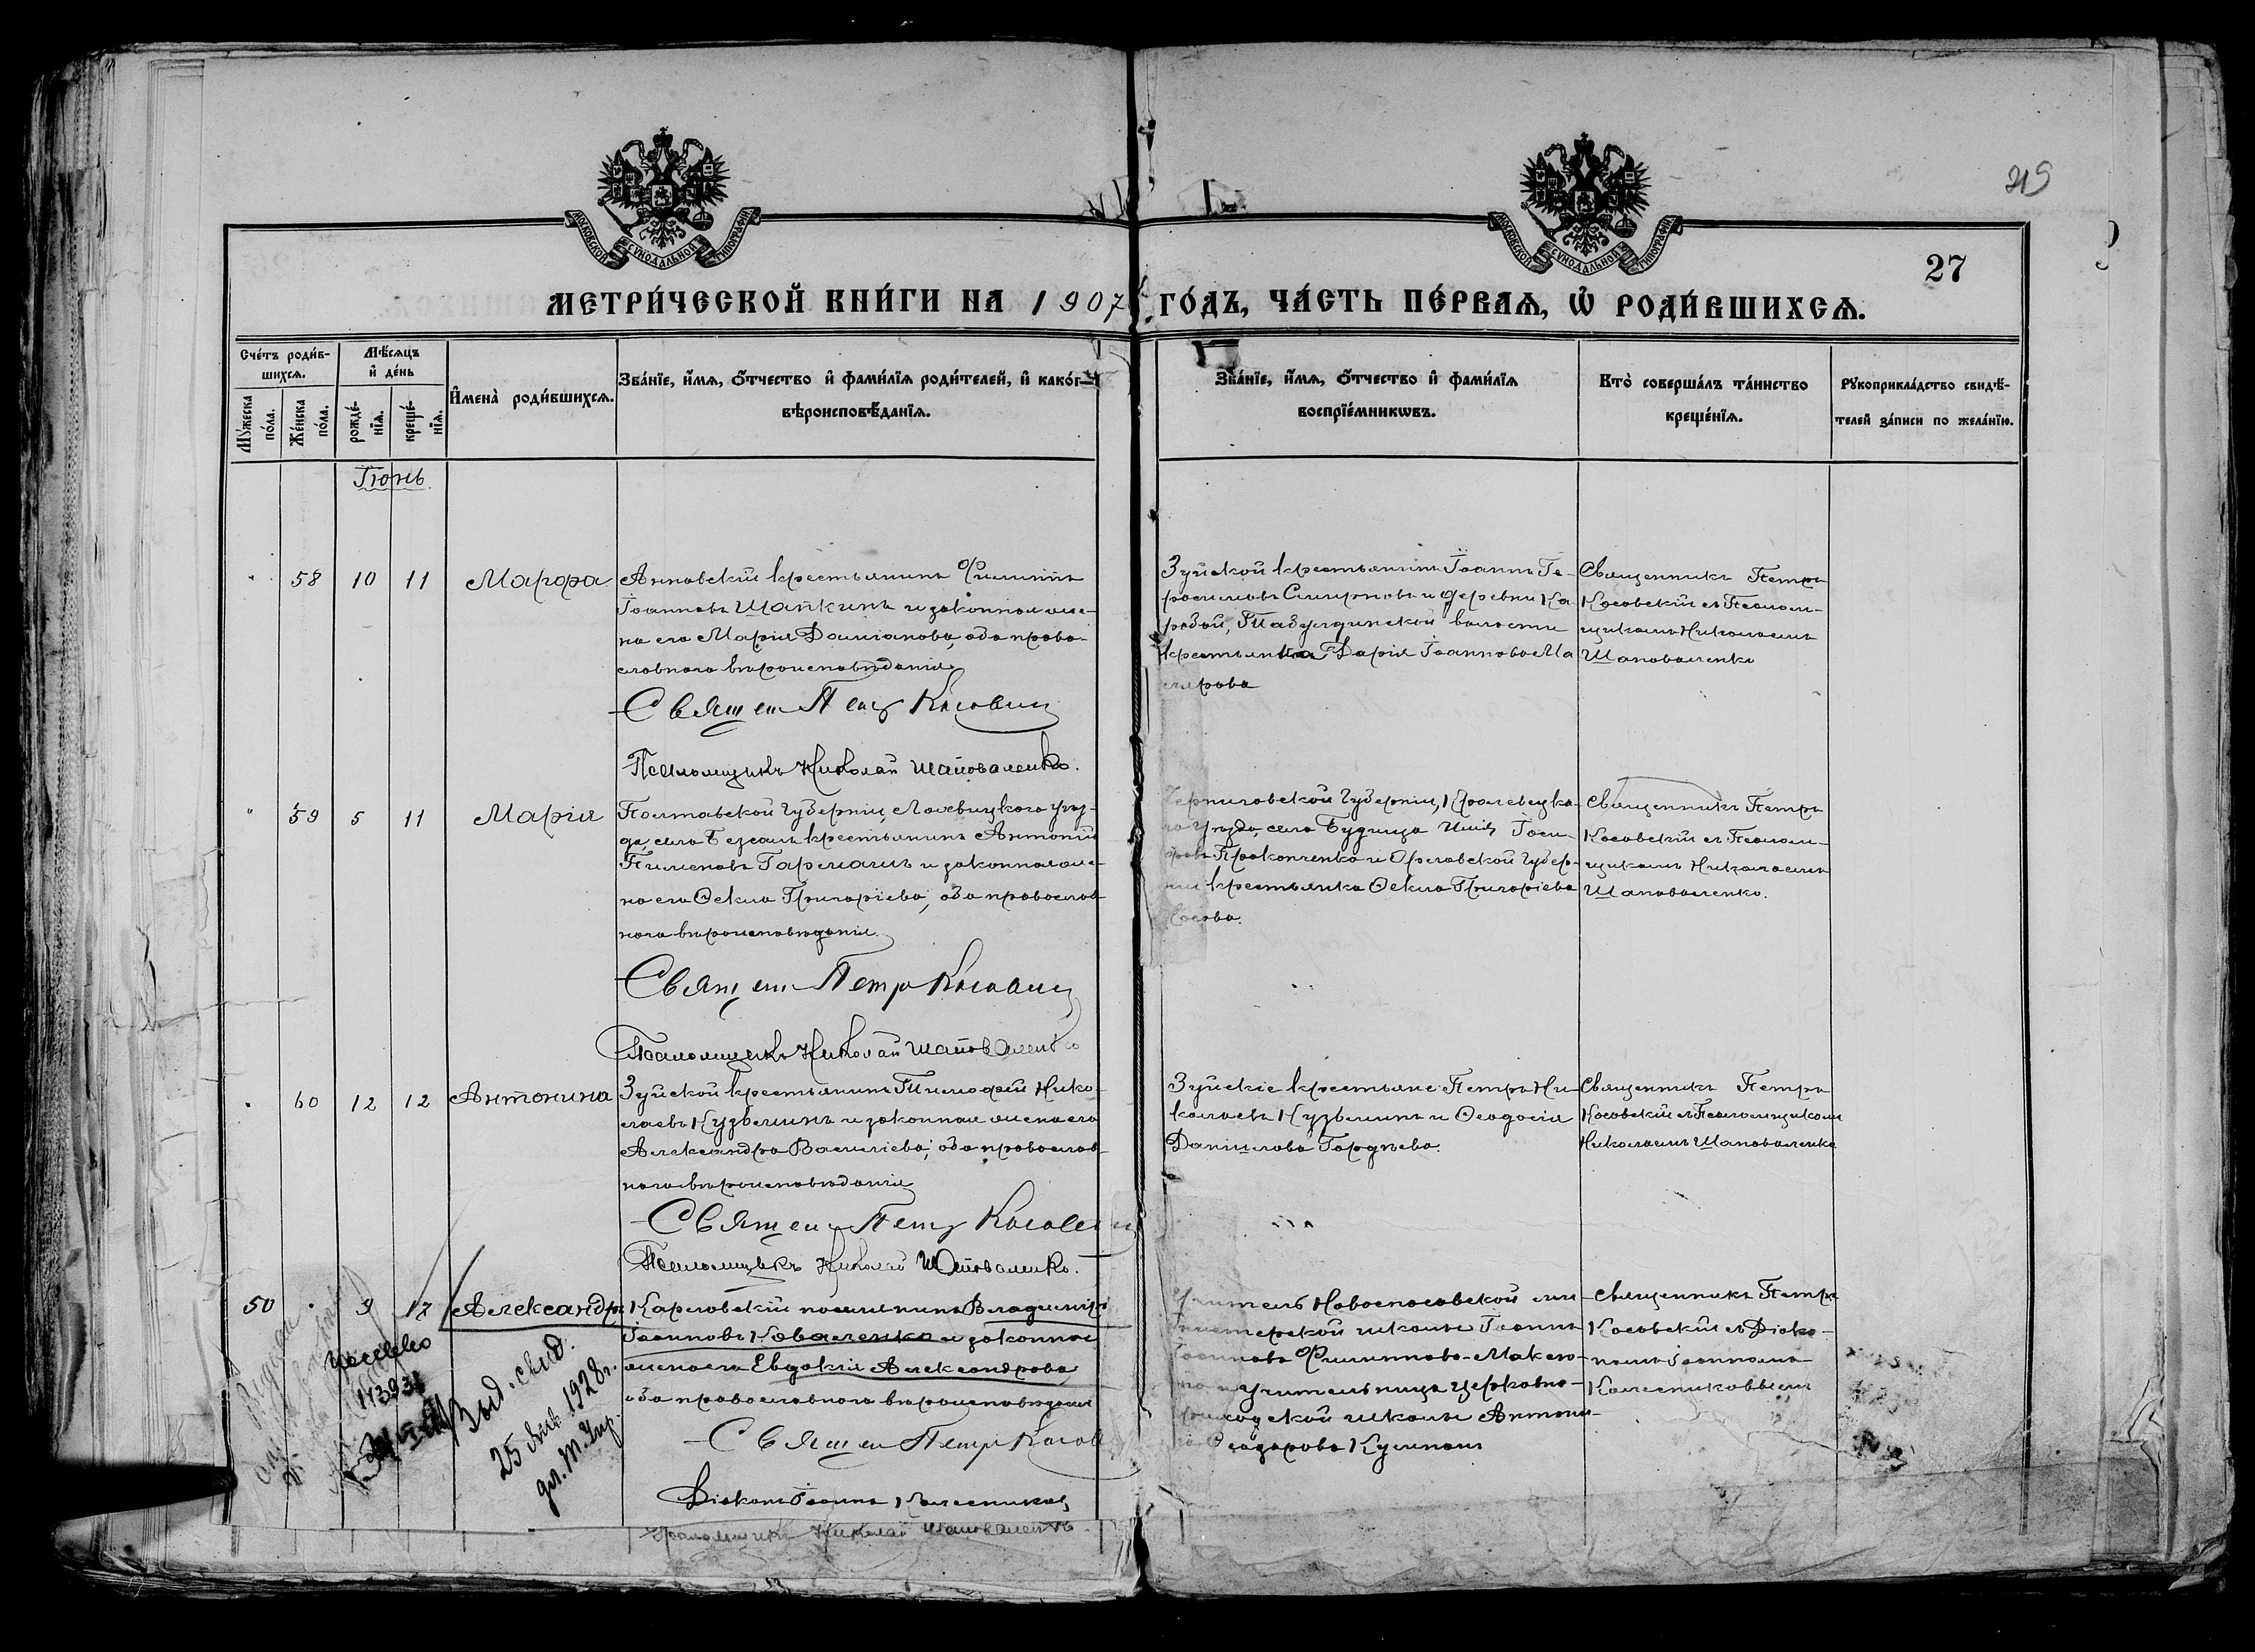 219
27
МОСКОВСКОЙ СУНОДАЛЬНОЙ ТИПОГРАФІИ
МОСКОВСКОЙ СУНОДАЛЬНОЙ ТИПОГРАФІИ
МЕТРИ́ЧЕСКОЙ КНИ́ГИ НА 1907 ГО́ДЪ, ЧА́СТЬ ПЕ́РВАѦ, Ѡ҆ РОДИ́ВШИХСѦ.
Сче́тъ роди́в-
шихсѧ.
Мѣ́сѧцъ
и҆ де́нь
Мꙋ́жеска по́ла.
Же́нска по́ла.
рожде́-
нїѧ.
креще́-
нїѧ.
И҆мена̀ роди́вшихсѧ.
Зва́нїе, и҆́мѧ, ѻ҆́тчество и҆ фами́лїѧ роди́телей, и҆ како́гѡ
вѣроисповѣ́данїѧ.
Зва́нїе, и҆́мѧ, ѻ҆́тчество и҆ фами́лїѧ
воспрїе́мникѡвъ.
Кто̀ соверша́лъ та́инство
креще́нїѧ.
Рꙋкоприкла́дство свидѣ́-
телей за́писи по жела́нїю.
Іюнь
58 10 11
Анновскій крестьянинъ Филиппъ
Іоанновъ Шапкинъ и законная же-
на его Марія Даміанова, оба право-
славнаго вѣроисповѣданія
Священ Петр Косовскій
Псаломщикъ Николай Шаповаленко.
Зуйской крестьянинъ Іоаннъ Ге-
расимовъ Смирновъ и деревни Ка-
Табулдинской волости
крестьянка Дарія Іоаннова Ма
Священникъ Петръ
Косовскій съ Псалом-
щикомъ Николаемъ
Шаповаленко
59 5 11 Марія
Полтавской губерніи, Лохвицкаго уѣз-
да, села крестьянинъ Антоній
Пименовъ и законная же-
на его Ѳекла Григоріева, оба православ-
наго вѣроисповѣданія.
Священ Петр Косовскій
Псаломщикъ Николай Шаповаленко
Черниговской Губерніи, Кролевецка-
го уѣзда, села Будища
Прокопченко и Орловской губер-
ніи крестьянка Ѳекла Григоріева
Священникъ Петръ
Косовскій съ Псалом-
щикомъ Николаемъ
Шаповаленко.
60 12 12 Антонина
Зуйской крестьянинъ Тимоѳей Нико-
лаевъ Кузьминъ и законная жена его
Александра Василіева, оба православ-
наго вѣроисповѣданія
Священ Петр Косовскій
Псаломщикъ Николай Шаповаленко.
Зуйскіе крестьяне: Петръ Ни-
колаевъ Кузьминъ и Ѳеодосія
Даніилова Гордѣева.
Священникъ Петръ
Косовскій съ Псаломщикомъ
Николаемъ Шаповаленко
50 9 17 Александръ
Карловскій поселянинъ Владиміръ
Іоанновъ Коваленко и законная
жена его Евдокія Александрова
оба православнаго вѣроисповѣданія
Священ Петръ Косовскій
Діаконъ Іоаннъ Колесниковъ
Псаломщикъ Николай Шаповаленко.
Учитель Новоспасовской ми-
нистерской школы Іоаннъ
Іоанновъ
и учительница церковно-
приходской школы Антони-
на
Священникъ Петръ
Косовскій съ Діако-
номъ Іоанномъ
Колесниковымъ
Выд. свид.
1928 г.